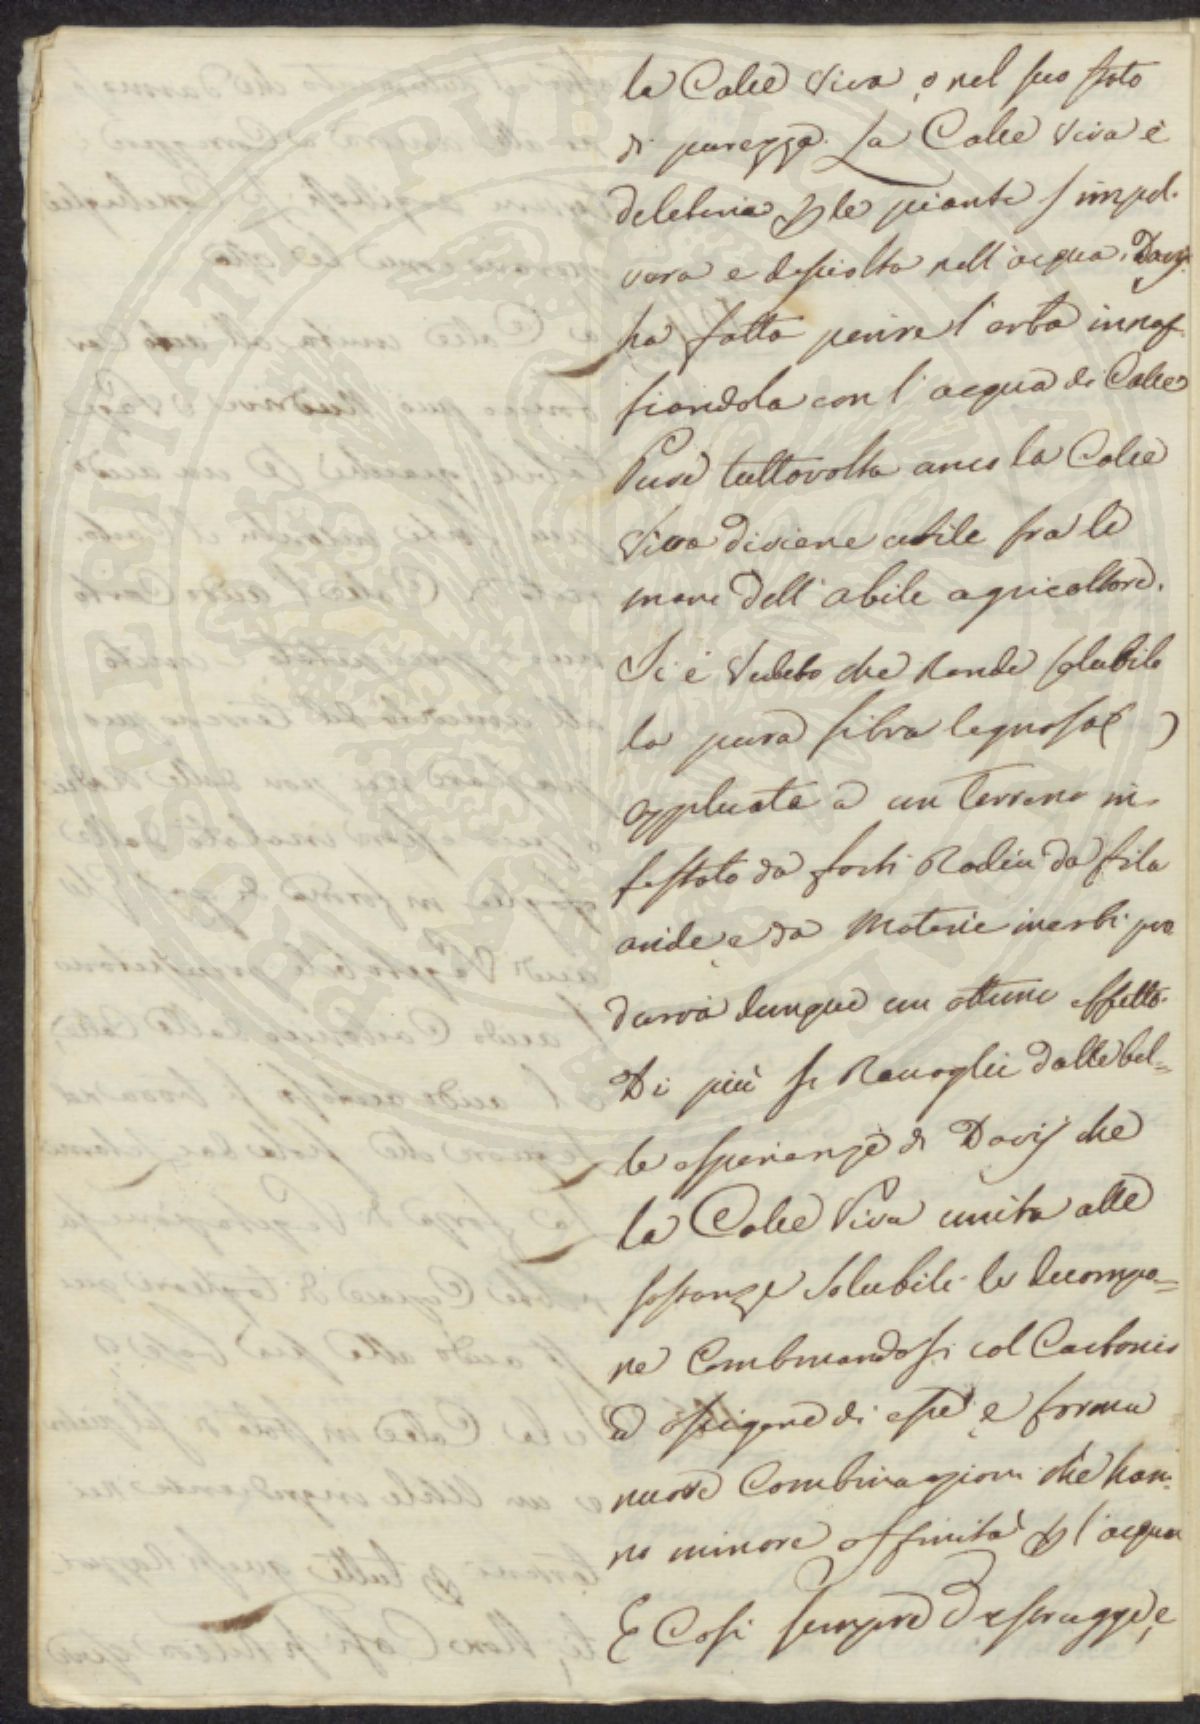 la Calce viva, o nel suo stato
di purezza. La Calce viva è
deleteria p le piante s'impol-
vera e desciolta nell'acqua. Davy
ha fatto perire l'erba innaf-
fiandola con l'acqua di Calce
Pure tuttavolta anco la Calce
Viva diviene utile fra le
mani dell'abile agricoltore.
Si è veduto che Rende solubile
la pura fibra legnosa( )
applicata a un Terreno in-
festato da forti Radici da fila
aride e da Materie inerti pro
durrà dunque un ottimo effetto.
Di più si Raccoglie dalle bel=
le esperienze di Davy che
la Calce Viva unita alle
sostanze solubili le decompo=
ne Combinandosi col Carbonio
ed ossigene di esse e forma
nuove Combinazioni che han-
no minore affinità p l'acqua
E Così sempre Distrugge, e